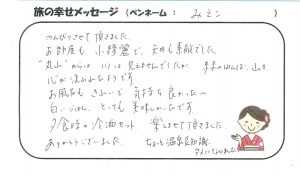 旅の幸せメッセージ (ペンネーム: みミン)
のんびりさせて頂きました。
お部屋も小綺麗で、天井も素敵でした。
"丸山"からは は見えませんでしたが、 山々
心が洗われたようです。
お風呂もきれいで気持ち良かった〜
白いごはん、とっても美味しかったです。
夕食時の冷酒セット、楽しませて頂きました。
ありがとうございました。 ちょっと温泉豆知識、
タメになりました